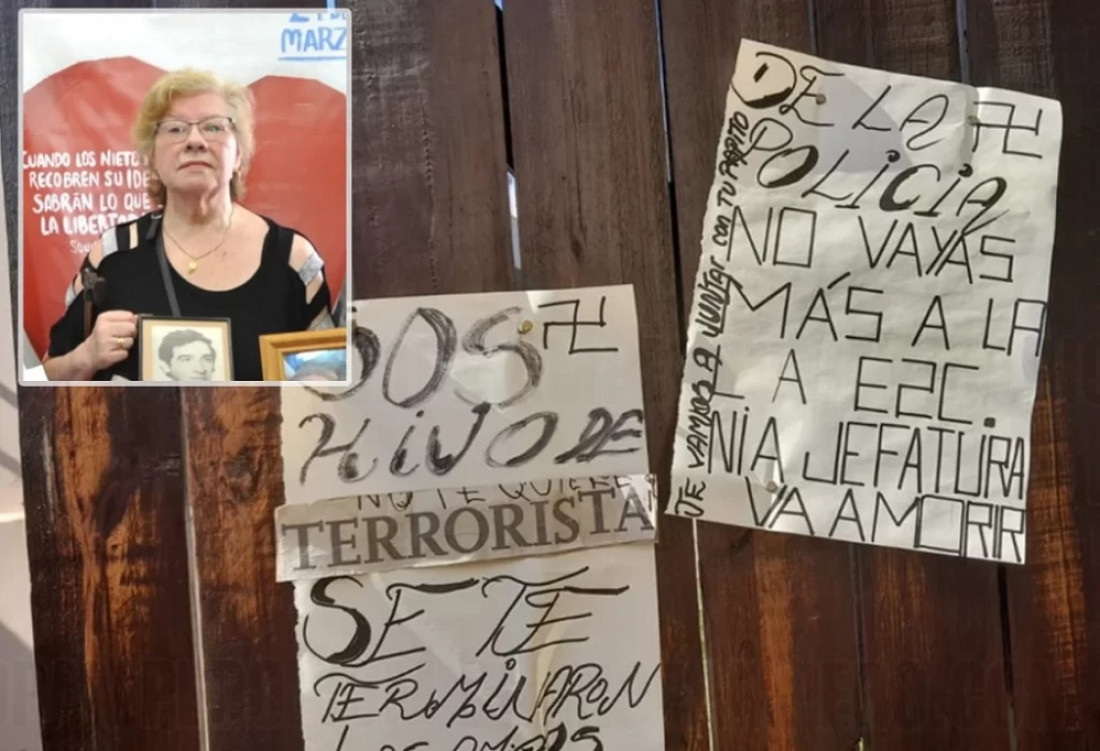 MARZ
CUANDO LOS NIETO
RECOBREN SU IDE
SABRÁN LO QUE
LA LIBERTA
SOS
HIJO DE
NO TE QUIERE
TERRORISTA
SE TE
TERMINARON
DE LA
POLICÍA
NO VAYAS
MÁS A LA
LA E2C.
NI A JEFATURA
VA A MORR
TE VAMOS A JUNTAR con TU PAPITO